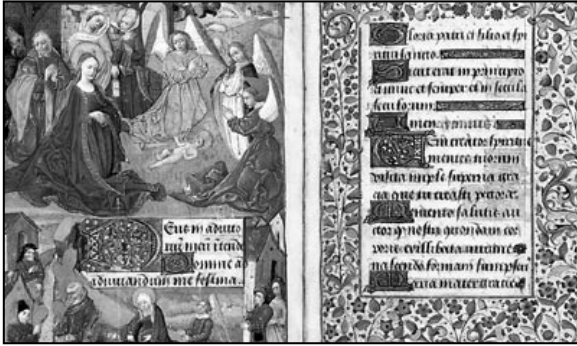 Deus in adiuto
riũ meũ ĩtende
Domine ad
adiuuandum me festina.
Gloria patri et filio et spi
ritui sancto.
Sicut erat in principio
et nunc et semper et in secula
seculorum.
Amen.
Veni creator spiritus
mentes tuorum
visita imple superna gra
cia que tu creasti pectora.
Memento salutis auc
tor nostri quondam cor
poris ex illibata virgine
nascendo formam sumpseris
Maria mater gracie